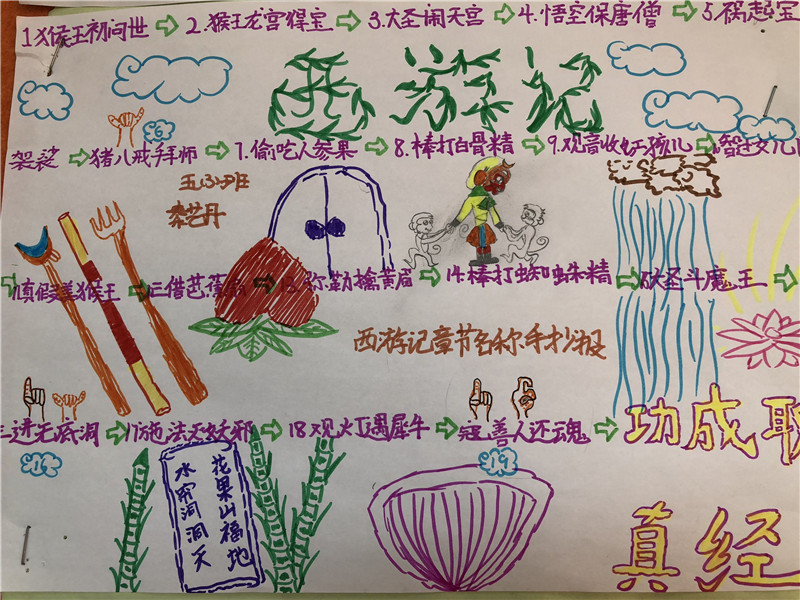 1.猴王初问世 2.猴王龙宫得宝 3.大圣闹天宫 4.悟空保唐僧 5.祸起宝
西游记
袈裟 猪八戒拜师 7.偷吃人参果 8.棒打白骨精 9.观音收红孩儿
五(3)班
艺丹
真假美猴王 三借芭蕉 弥勒擒黄眉 14.棒打蜘蛛精 圣斗魔王
西游记章节名称手抄报
三进无底洞 17施法灭妖邪 18观灯遇犀牛 寇善人还魂 功成取
花果山福地
水帘洞洞天
真经